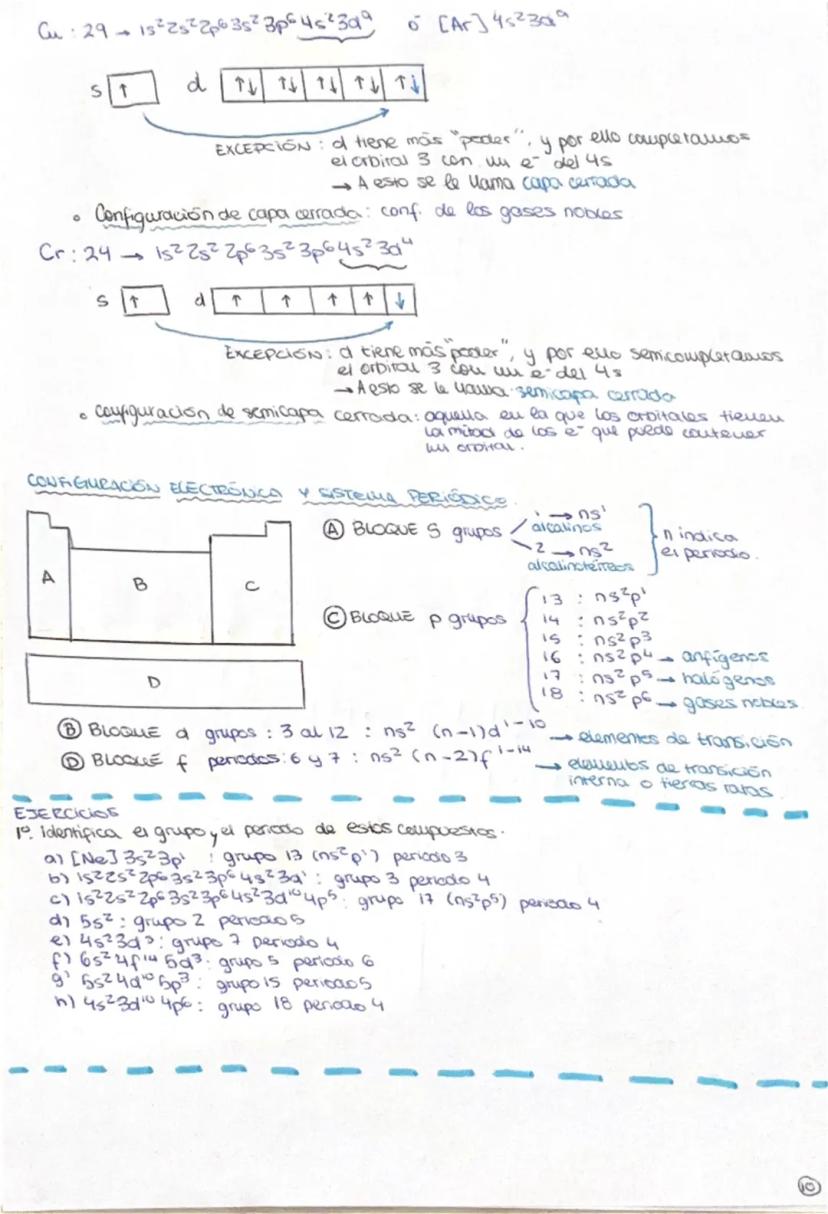 Cu : 29 → 1s² 2s² 2p⁶ 3s² 3p⁶ 4s² 3d⁹ ó [Ar] 4s² 3d⁹
s ↑ d ↑↓ ↑↓ ↑↓ ↑↓ ↑↓
EXCEPCIÓN : d tiene más "poder", y por ello completamos
el orbital 3 con un e⁻ del 4s
→ A esto se le llama capa cerrada
• Configuración de capa cerrada : conf. de los gases nobles
Cr : 24 → 1s² 2s² 2p⁶ 3s² 3p⁶ 4s² 3d⁴
s ↑ d ↑ ↑ ↑ ↑ ↓
EXCEPCIÓN : d tiene más "poder", y por ello semicompletamos
el orbital 3 con un e⁻ del 4s
→ A esto se le llama semicapa cerrada
• Configuración de semicapa cerrada : aquella en la que los orbitales tienen
la mitad de los e⁻ que puede contener
un orbital.
CONFIGURACIÓN ELECTRÓNICA Y SISTEMA PERIÓDICO.
A B C D
Ⓐ BLOQUE S grupos
1 → ns¹
alcalinos
2 → ns²
alcalinotérreos
n indica
el periodo.
Ⓒ BLOQUE p grupos
13 : ns²p¹
14 : ns²p²
15 : ns²p³
16 : ns²p⁴ → anfígenos
17 : ns²p⁵ → halógenos
18 : ns²p⁶ → gases nobles
Ⓑ BLOQUE d grupos : 3 al 12 : ns² (n-1)d¹⁻¹⁰ → elementos de transición
Ⓓ BLOQUE f periodos : 6 y 7 : ns² (n-2)f¹⁻¹⁴ → elementos de transición
interna o tierras raras
EJERCICIOS
1º. Identifica el grupo y el periodo de estos compuestos.
a) [Ne] 3s² 3p¹ : grupo 13 (ns²p¹) periodo 3
b) 1s² 2s² 2p⁶ 3s² 3p⁶ 4s² 3d¹ : grupo 3 periodo 4
c) 1s² 2s² 2p⁶ 3s² 3p⁶ 4s² 3d¹⁰ 4p⁵ : grupo 17 (ns²p⁵) periodo 4
d) 5s² : grupo 2 periodo 5
e) 4s² 3d⁵ : grupo 7 periodo 4
f) 6s² 4f¹⁴ 5d³ : grupo 5 periodo 6
g) 5s² 4d¹⁰ 5p³ : grupo 15 periodo 5
h) 4s² 3d¹⁰ 4p⁶ : grupo 18 periodo 4
⑩